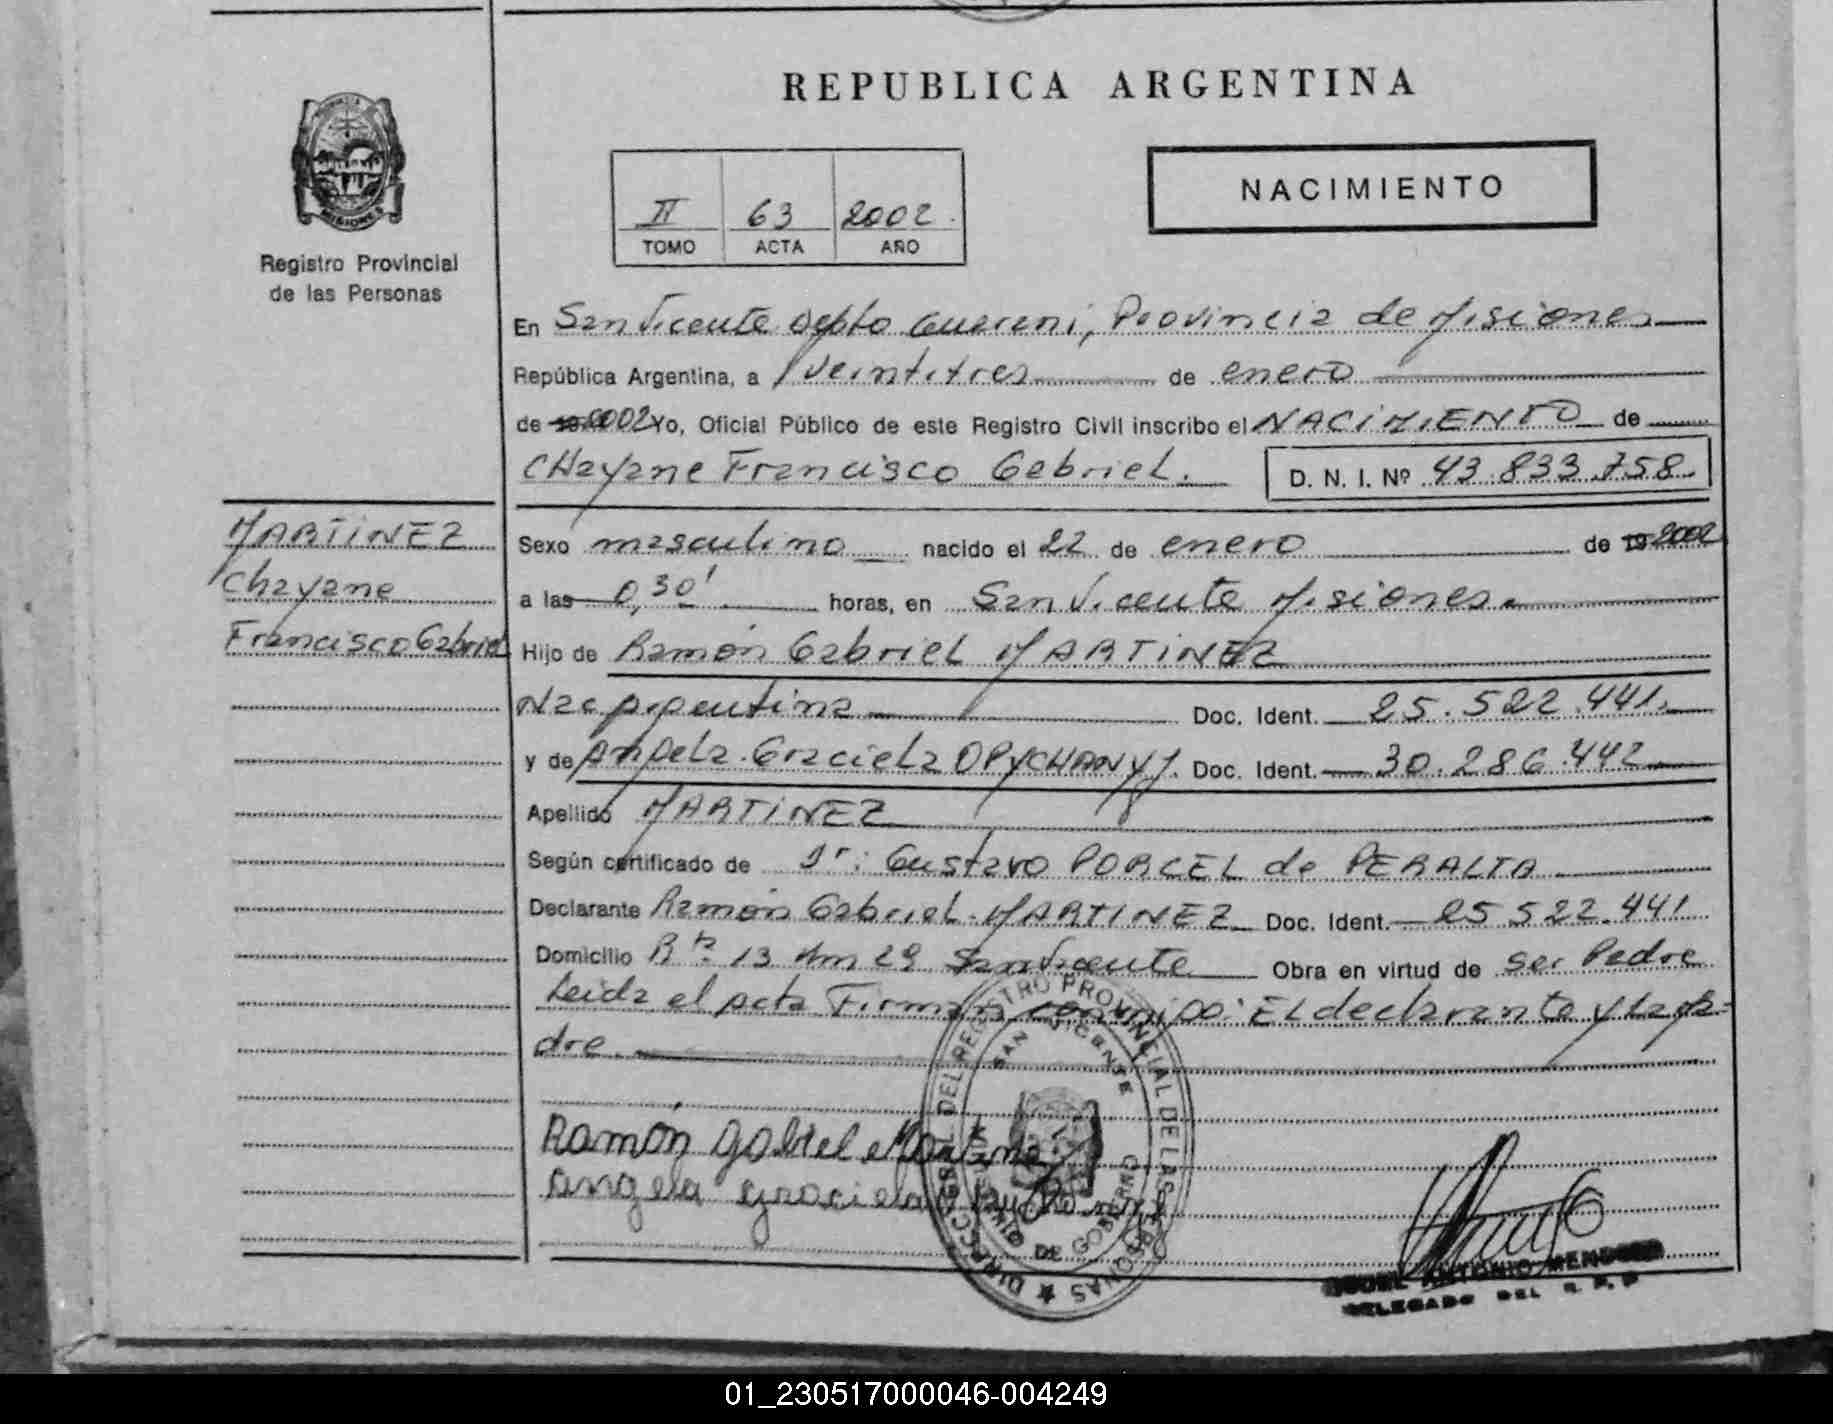 REPUBLICA ARGENTINA
NACIMIENTO
II 63 2002.
TOMO ACTA AÑO
MISIONES
Registro Provincial
de las Personas
En San Vicente Depto Guarani, Provincia de Misiones
República Argentina, a veintitres de enero
de 2002 Yo, Oficial Público de este Registro Civil inscribo el NACIMIENTO de
CHayane Francisco Gabriel. D. N. I. Nº 43.833.758.
MARTINEZ
Chayane
Francisco Gabriel
Sexo masculino nacido el 22 de enero de 19 2002
a las 0,30' horas, en San Vicente Misiones.
Hijo de Ramón Gabriel MARTINEZ
Nac Argentina Doc. Ident. 25.522.441.
y de Angela Graciela OPYCHANYJ. Doc. Ident. 30.286.442
Apellido MARTINEZ
Según certificado de Dr: Gustavo PORCEL de PERALTA
Declarante Ramón Gabriel MARTINEZ Doc. Ident. 25 522.441
Domicilio Rta 13 Km 29 San Vicente Obra en virtud de ser Padre
Leida el acta Firman conmigo: El declarante y la ma-
dre.
Ramón Gabriel Martinez
angela graciela
DIRECC. GRAL. DEL REGISTRO PROVINCIAL DE LAS PERSONAS
SAN VICENTE
DE GOBIERNO
ANTONIO MENDOZA
DELEGADO DEL R. P. P
01_230517000046-004249